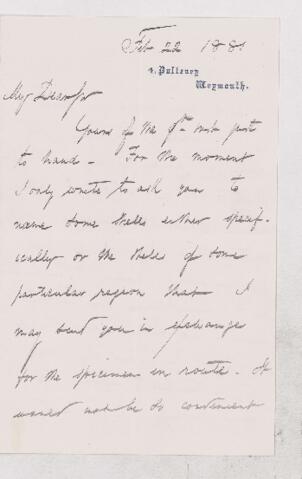 Feb 22 188
4, Pulteney
Weymouth.
My Dear Sir
Yours of the 9th inst just
to hand - For the moment
I only write to ask you to
name some shells either specif-
ically or the shells of some
particular region that I
may send you in exchange
for the specimen en route. It
would not be so convenient